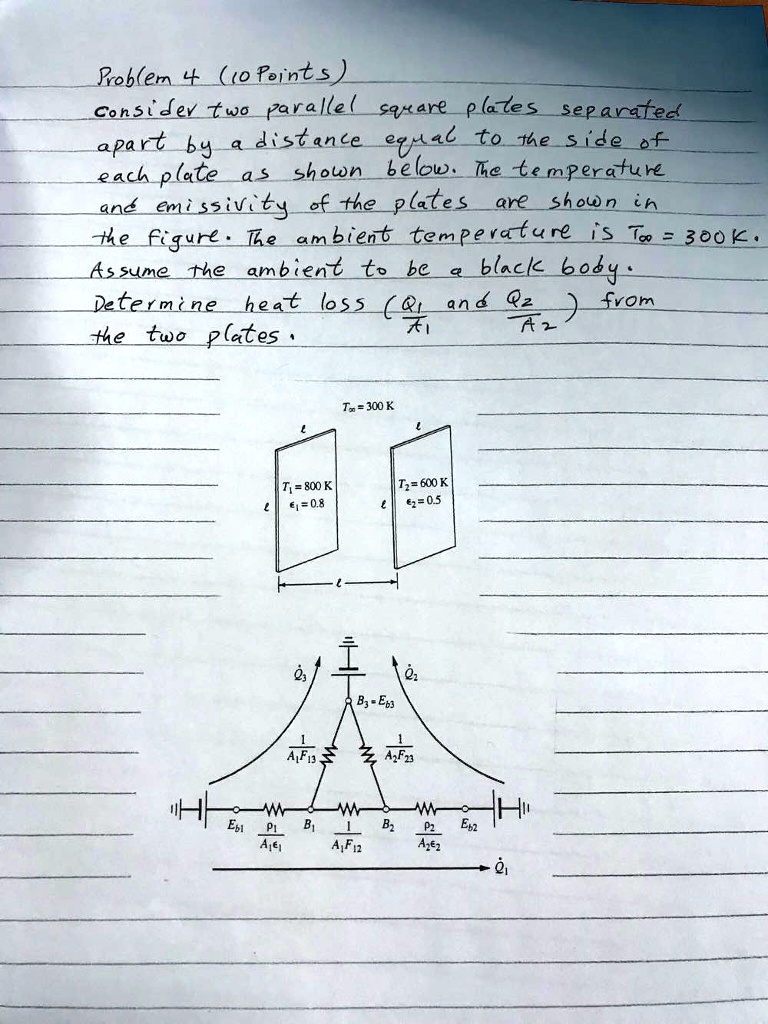 Problem 4 (10 Points)
Consider two parallel square plates separated
apart by a distance equal to the side of
each plate as shown below. The temperature
and emissivity of the plates are shown in
the figure. The ambient temperature is T∞ = 300 K.
Assume the ambient to be a black body.
Determine heat loss (Q1/A1 and Q2/A2) from
the two plates.
T∞ = 300 K
ℓ ℓ
T1 = 800 K T2 = 600 K
ϵ1 = 0.8 ϵ2 = 0.5
ℓ ℓ
ℓ
Q̇3 Q̇2
B3 = Eb3
1/A1F13 1/A2F23
Eb1 ρ1/A1ϵ1 B1 1/A1F12 B2 ρ2/A2ϵ2 Eb2
Q̇1